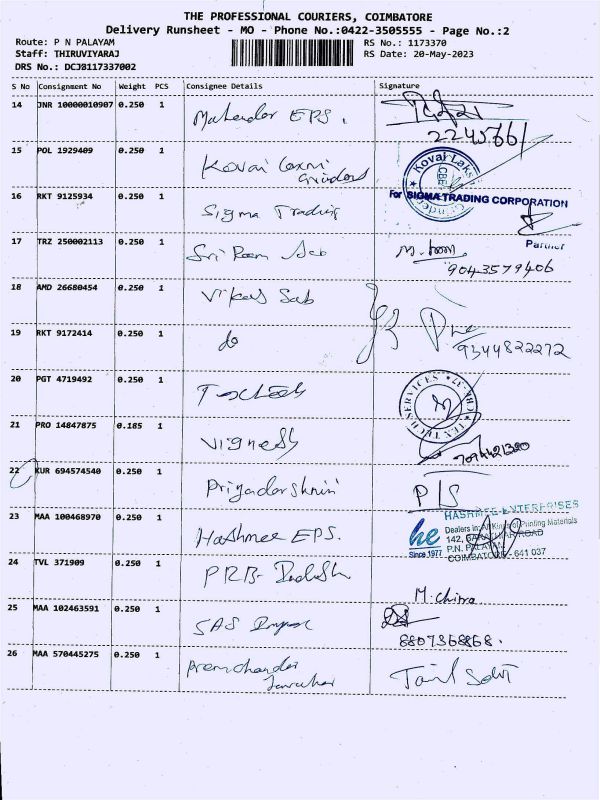 THE PROFESSIONAL COURIERS, COIMBATORE
Delivery Runsheet - MO - Phone No.:0422-3505555 - Page No.:2
Route: P N PALAYAM
RS No.: 1173370
Staff: THIRUVIYARAJ
RS Date: 20-May-2023
DRS No.: DCJ8117337002
S No Consignment No Weight PCS Consignee Details Signature
14 JNR 10000010907 0.250 1 Mahendar EPS.
2245661
15 POL 1929409 0.250 1 Kovai Laxmi
Grinders
Kovai Laks
CBE
16 RKT 9125934 0.250 1 Sigma Trading
For SIGMA TRADING CORPORATION
Partner
17 TRZ 250002113 0.250 1 Sri Ram
9043579406
18 AMD 26680454 0.250 1 Vikas Sab
19 RKT 9172414 0.250 1 do
9344822272
20 PGT 4719492 0.250 1
SERVICES
21 PRO 14847875 0.185 1 Vignesh
22 KUR 694574540 0.250 1 Priyadarshini P/S
23 MAA 100468970 0.250 1 Hashmee EPS.
HASHMEE ENTERPRISES
he Dealers in: All Kinds of Printing Materials
142, ROAD
Since 1977 P.N. PALAYAM
COIMBATORE - 641 037
24 TVL 371909 0.250 1 PRB-
M. Chitra
25 MAA 102463591 0.250 1 SAS
8807368868.
26 MAA 570445275 0.250 1 Premchander
Jawahar
Tamil Selvi